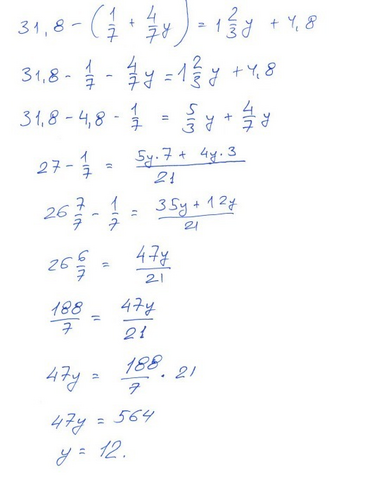 31,8 - (1/7 + 4/7 y) = 1 2/3 y + 4,8
31,8 - 1/7 - 4/7 y = 1 2/3 y + 4,8
31,8 - 4,8 - 1/7 = 5/3 y + 4/7 y
27 - 1/7 = (5y·7 + 4y·3)/21
26 7/7 - 1/7 = (35y + 12y)/21
26 6/7 = 47y/21
188/7 = 47y/21
47y = 188/7 · 21
47y = 564
y = 12.